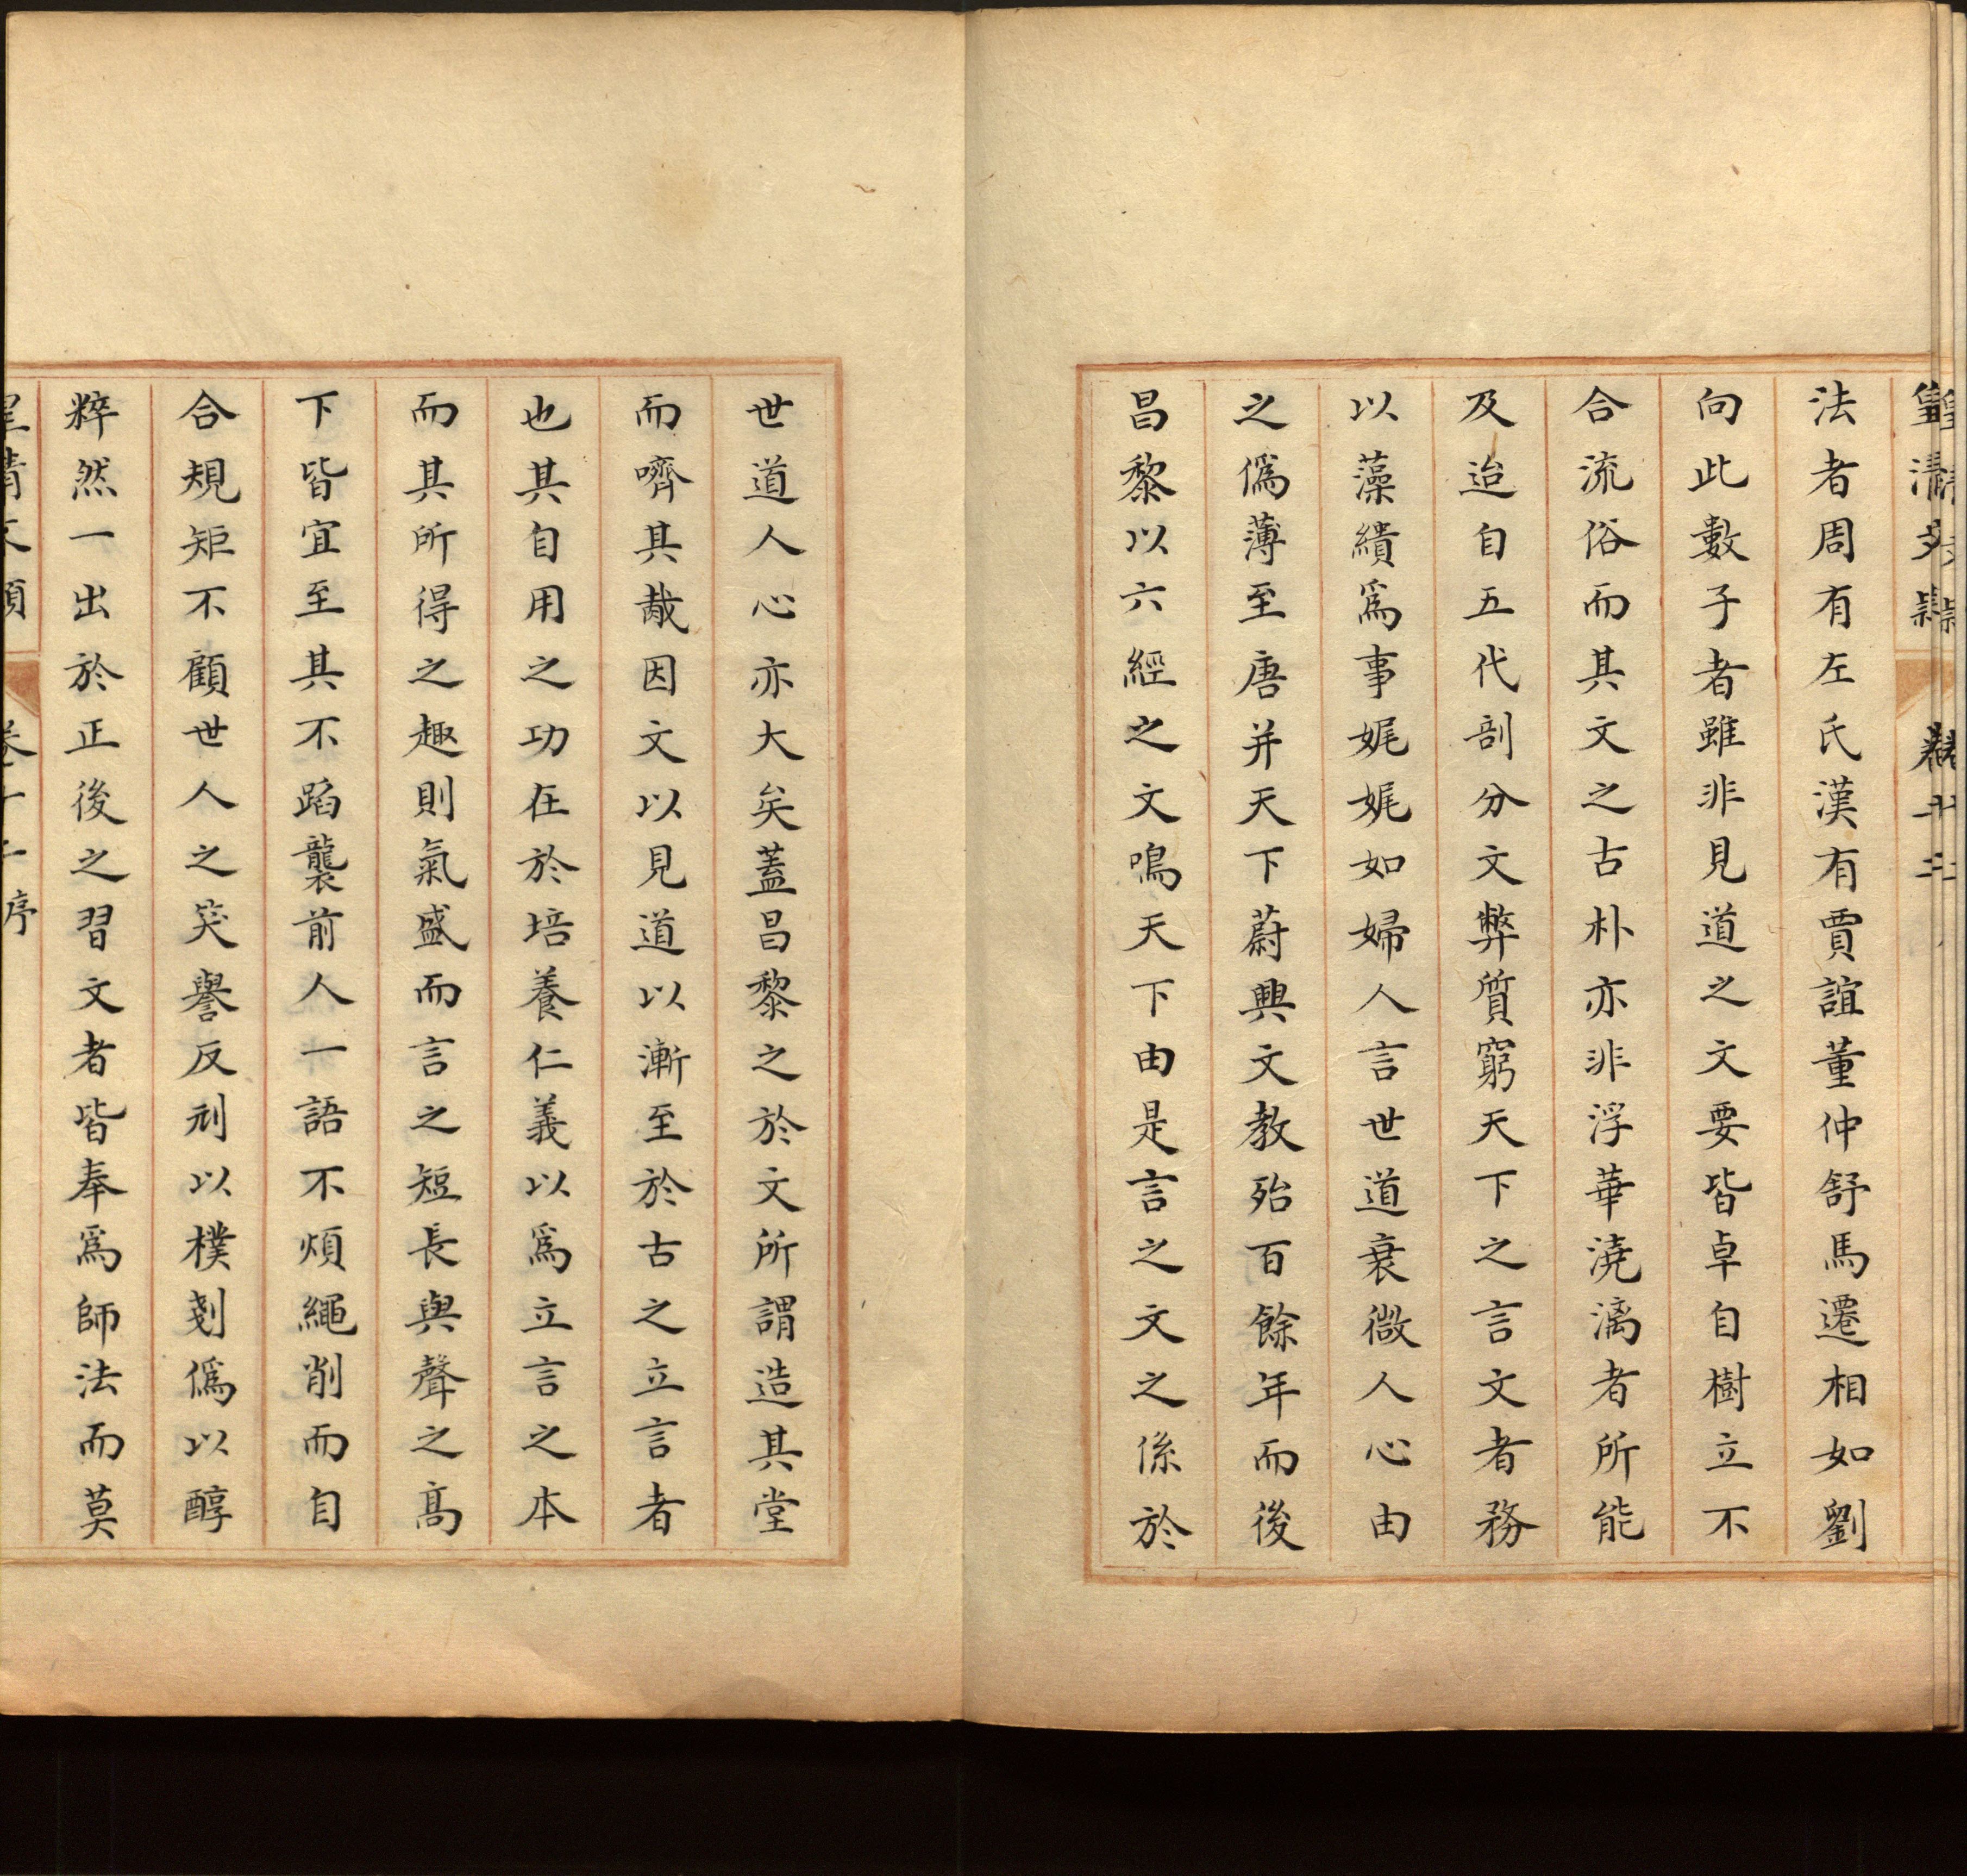 法者周有左氏漢有賈誼董仲舒馬遷相如劉
向此數子者雖非見道之文要皆卓自樹立不
合流俗而其文之古朴亦非浮華澆漓者所能
及迨自五代剖分文弊質窮天下之言文者務
以藻繢爲事娓娓如婦人言世道衰微人心由
之僞薄至唐并天下蔚興文教殆百餘年而後
昌黎以六經之文鳴天下由是言之文之係於
世道人心亦大矣蓋昌黎之於文所謂造其堂
而嚌其胾因文以見道以漸至於古之立言者
也其自用之功在於培養仁義以爲立言之本
而其所得之趣則氣盛而言之短長與聲之高
下皆宜至其不蹈襲前人一語不煩繩削而自
合規矩不顧世人之笑譽反刓以樸剗僞以醇
粹然一出於正後之習文者皆奉爲師法而莫